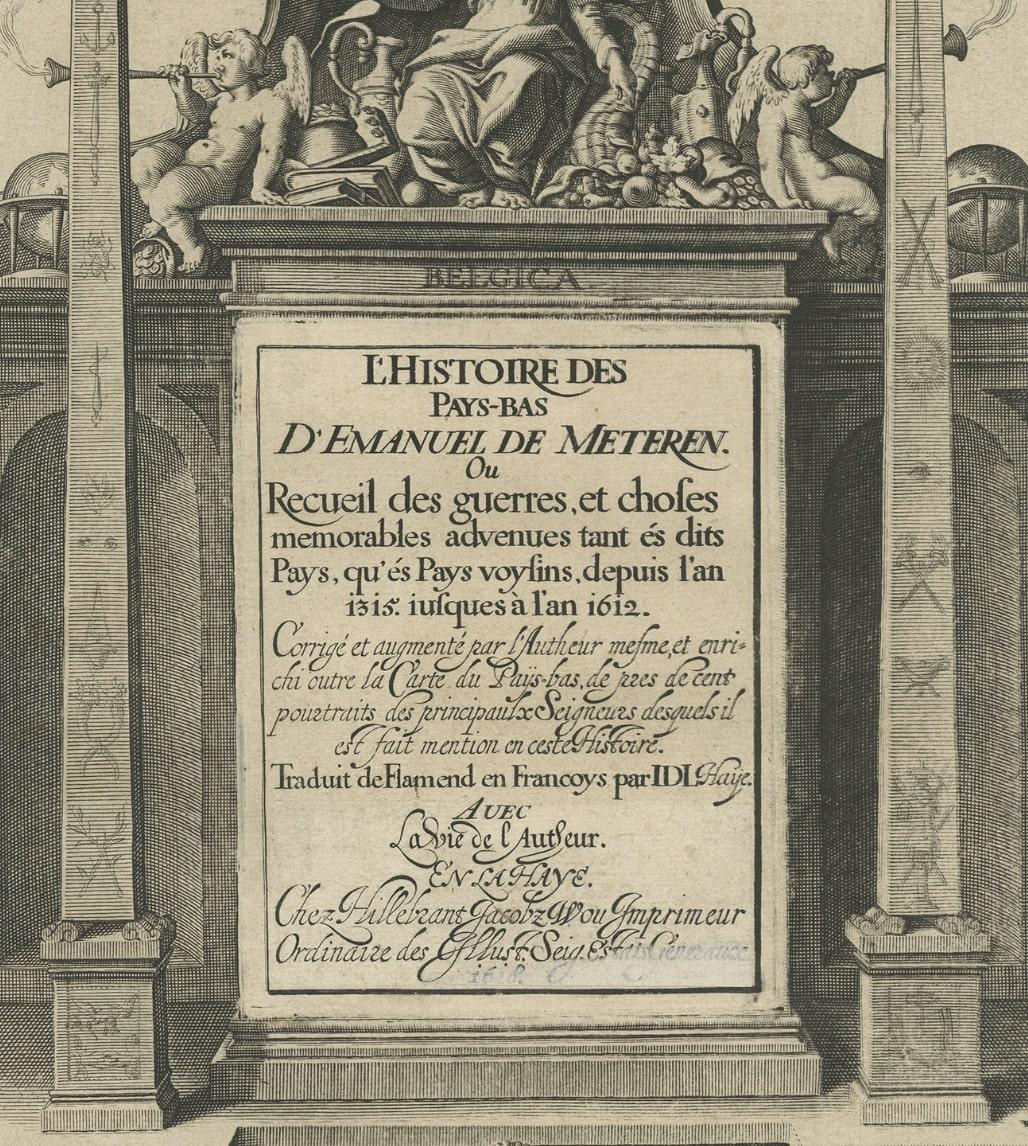 BELGICA
L'HISTOIRE DES
PAYS-BAS
D'EMANUEL DE METEREN.
Ou
Recueil des guerres, et choſes
memorables advenues tant és dits
Pays, qu'és Pays voyſins, depuis l'an
1315. iuſques à l'an 1612.
Corrigé et augmenté par l'Autheur meſme, et enri-
chi outre la Carte du Païs-bas, de pres de cent
pourtraits des principaulx Seigneurs desquels il
est fait mention en ceste Histoire.
Traduit de Flamend en Francoys par IDL Haye.
AVEC
La Vie de l'Autheur.
EN LA HAYE.
Chez Hillebrant Jacobz Wou Imprimeur
Ordinaire des Illust. Seig. Estats Generaux
1618.